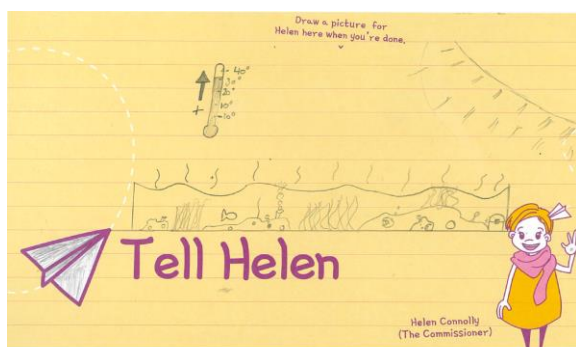 Draw a picture for
Helen here when you're done.
+
Tell Helen
Helen Connolly
(The Commissioner)